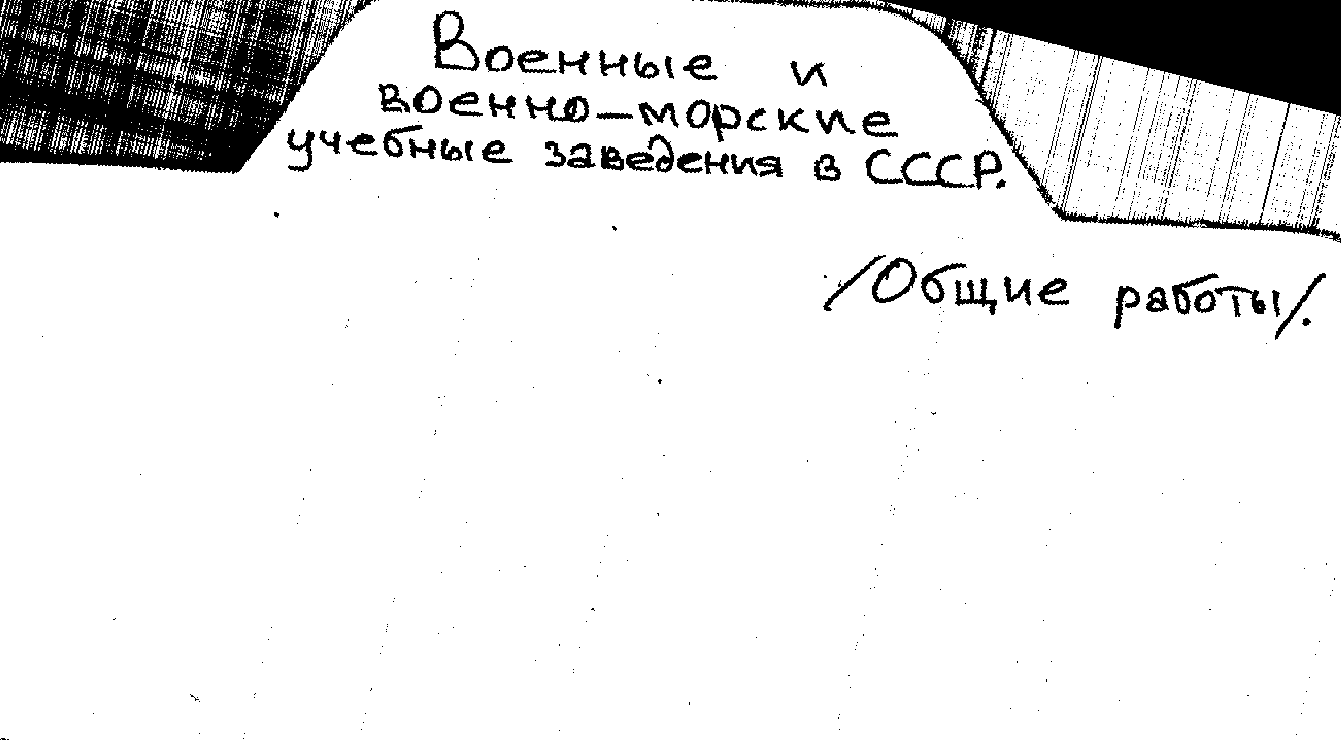 Военные и
военно-морские
учебные заведения в СССР.
/Общие работы/.